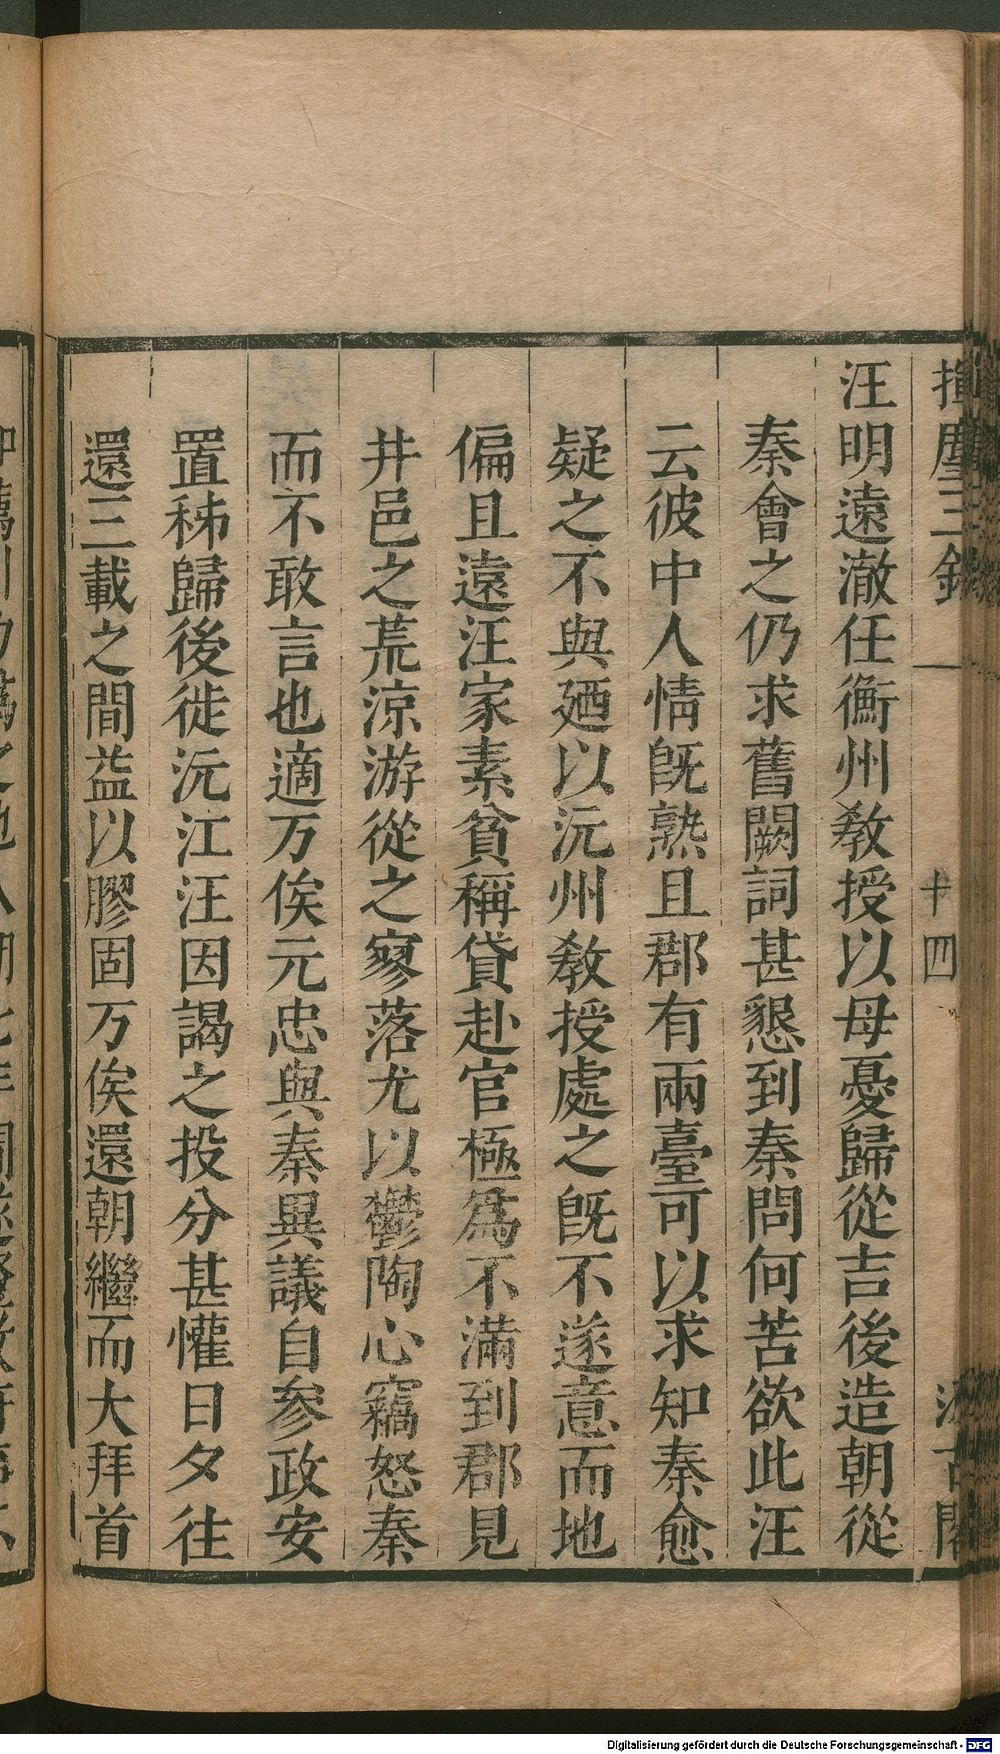 揮麈三錄 一 十四 汲古閣
汪明遠澈任衡州敎授以母憂歸從吉後造朝從
秦會之仍求舊闕詞甚懇到秦問何苦欲此汪
云彼中人情旣熟且郡有兩臺可以求知秦愈
疑之不與廼以沅州敎授處之旣不遂意而地
偏且遠汪家素貧稱貸赴官極爲不滿到郡見
井邑之荒涼游從之寥落尤以鬱陶心竊怒秦
而不敢言也適万俟元忠與秦異議自參政安
置秭歸後徙沅江汪因謁之投分甚懽日夕往
還三載之間益以膠固万俟還朝繼而大拜首
Digitalisierung gefördert durch die Deutsche Forschungsgemeinschaft - DFG